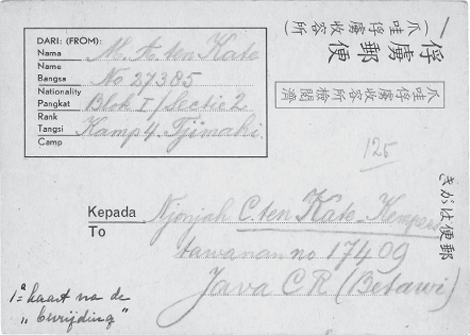 DARI: (FROM):
Nama
Name
M. A. ten Kate
Bangsa
Nationality
No 27385
Pangkat
Rank
Blok I/Sectie 2
Tangsi
Camp
Kamp 4. Tjimahi.
俘虜郵便
(爪哇俘虜收容所)
爪哇俘虜收容所檢閱濟
1
125
きがは便郵
Kepada
To
Njonjah C. ten Kate-Kempers
tawanan no 17409
Java CR (Betawi)
1e kaart na de
„bevrijding"